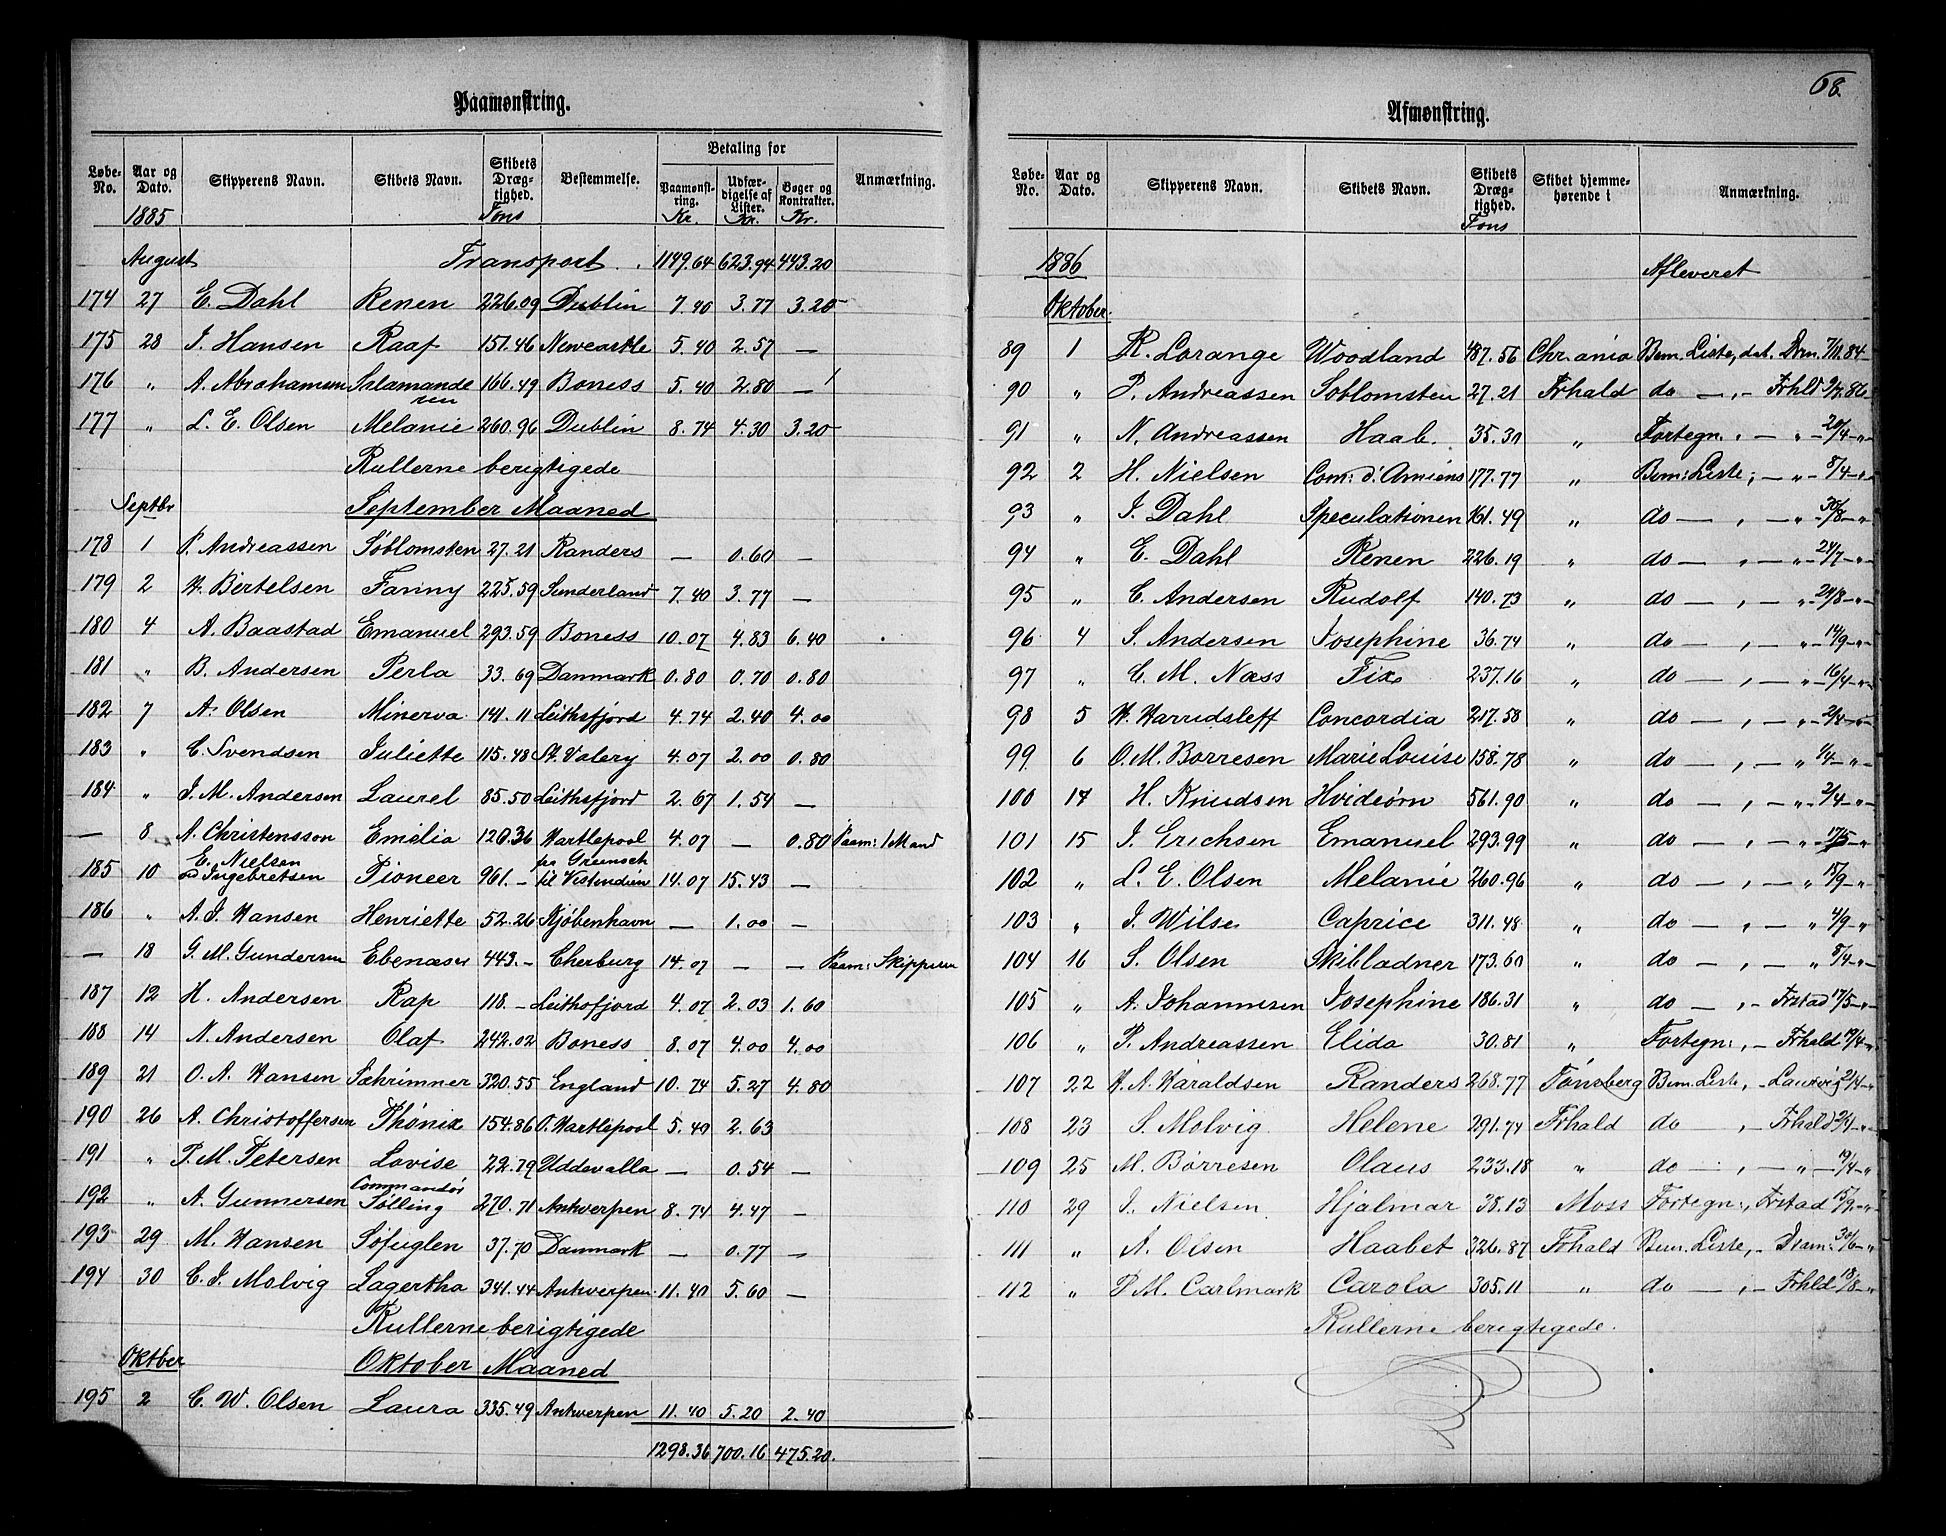 68.
Paamønstring.
Løbe-No. Aar og Dato. Skipperens Navn. Skibets Navn. Skibets Dræg-tighed. Bestemmelse. Betaling for Paamønst-ring. Udfær-digelse af Lister. Bøger og Kontrakter. Anmærkning.
1885 Tons Kr. Kr. Kr.
August Transport . 1149.64 623.94 443.20
174 27 E. Dahl Renen 226.09 Dublin 7.40 3.77 3.20
175 28 J. Hansen Raaf 151.46 Newcastle 5.40 2.57 —
176 " A. Abrahamsen Salamanderen 166.49 Boness 5.40 2.80 —
177 " L. E. Olsen Melanie 260.96 Dublin 8.74 4.30 3.20
Rullerne berigtigede
Septbr September Maaned
178 1 P. Andreassen Søblomsten 27.21 Randers — 0.60 —
179 2 H. Bertelsen Fanny 225.59 Sunderland 7.40 3.77 —
180 4 A. Baastad Emanuel 293.59 Boness 10.07 4.83 6.40
181 " B. Andersen Perla 33.69 Danmark 0.80 0.70 0.80
182 7 A. Olsen Minerva 141.11 Leithsfjord 4.74 2.40 4.00
183 " C. Svendsen Juliette 115.48 St. Valery 4.07 2.00 0.80
184 " J. M. Andersen Laurel 85.50 Leithsfjord 2.67 1.54 —
— 8 A. Christensson Emelia 120.36 Hartlepool 4.07 — 0.80 Paam: 1 Mand
185 10 E. Nielsen Ingebretsen Pioneer 961.— fra Greenock til Vestindien 14.07 15.43 —
186 " A. J. Hansen Henriette 52.26 Kjöbenhavn — 1.00
— 18 G. M. Gundersen Ebenæser 443.— Cherburg 14.07 — — Paam: Skipperen
187 12 H. Andersen Rap 118 — Leithsfjord 4.07 2.03 1.60
188 14 N. Andersen Olaf 242.02 Boness 8.07 4.00 4.00
189 21 O. A. Hansen Sæhrimner 320.55 England 10.74 5.27 4.80
190 26 A. Christoffersen Phönix 154.86 O. Hartlepool 5.40 2.63
191 " P. M. Petersen Lovise 22.79 Uddevalla — 0.54 —
192 " A. Gunnersen Commandör Sölling 270.71 Antwerpen 8.74 4.47 —
193 29 M. Hansen Söfuglen 37.70 Danmark — 0.77 —
194 30 C. J. Molvig Lagertha 341.44 Antwerpen 11.40 5.60 —
Rullerne berigtigede
Oktber Oktober Maaned
195 2 C. W. Olsen Laura 335.49 Antwerpen 11.40 5.20 2.40
1298.36 700.16 475.20.
Afmønstring.
Løbe-No. Aar og Dato. Skipperens Navn. Skibets Navn. Skibets Dræg-tighed. Skibet hjemme-hørende i Anmærkning.
Tons
1886 Afleveret
Oktober.
89 1 R. Lorange Woodland 487.56 Chr.ania Bem. Liste, dat. Drm. 7/11.84
90 " P. Andreassen Söblomsten 27.21 Frhald do —,- Frhld 9/7.86
91 " N. Andreassen Haab. 35.30 " Fortegn., — " 20/4 "
92 2 H. Nielsen Com: d'Amiens 177.77 " Bem: Liste, — " 8/4 "
93 " J. Dahl Speculationen 161.49 " do —, — " 30/8 "
94 " E. Dahl Renen 226.19 " do —, — " 24/7 "
95 " C. Andersen Rudolf 140.73 " do —, — " 24/8 "
96 4 S. Andersen Josephine 36.74 " do —, — " 14/9 "
97 " C. M. Næss Fix 237.16 " do —, — " 16/4 "
98 5 H. Harridsleff Concordia 217.58 " do —, — " 2/4 "
99 6 O. M. Børresen Marie Louise 158.78 " do —, — " 1/4 "
100 14 H. Knudsen Hvideörn 561.90 " do —, — " 2/4 "
101 15 J. Erichsen Emanuel 293.99 " do —, — " 17/5 "
102 " L. E. Olsen Melanie 260.96 " do —, — " 15/9 "
103 " J. Wilse Caprice 311.48 " do —, — " 4/9 "
104 16 S. Olsen Skibladner 173.60 " do —, — " 8/4 "
105 " A. Johannesen Josephine 186.31 " do —, - Frstad 17/5 "
106 " P. Andreassen Elida 30.81 " Fortegn:, - Frhald 19/4 "
107 22 H. A. Haraldsen Randers 268.77 Tönsberg Bem. Liste, - Laurvig 2/4 "
108 23 S. Molvig Helene 291.74 Frhald do —, - Frhald 2/4 "
109 25 M. Børresen Olaus 233.18 " do —, — " 19/4 "
110 29 J. Nielsen Hjalmar 38.13 Moss Fortegn:, Frstad 15/9 "
111 " A. Olsen Haabet 326.87 Frhald Bem. Liste, - Dram: 30/6 "
112 " P. M. Carlmark Carola 305.11 " do —, - Frhld 18/8 "
Rullerne berigtigede.